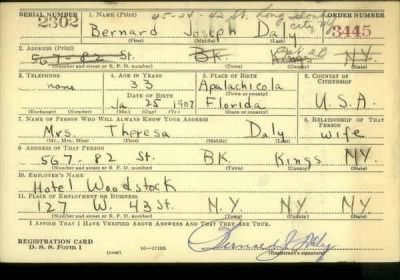 SERIAL NUMBER 1. NAME (Print) ORDER NUMBER
45-
2302 Bernard Joseph Daly 3445
(First) (Middle) (Last)
2. ADDRESS (Print)
567-82 St. BK. Kings N.Y.
(Number and street or R. F. D. number) (Town) (County) (State)
3. TELEPHONE 4. AGE IN YEARS 5. PLACE OF BIRTH 6. COUNTRY OF CITIZENSHIP
none 33 Apalachicola
DATE OF BIRTH (Town or county)
Ja 25 1907 Florida U.S.A.
(Exchange) (Number) (Mo.) (Day) (Yr.) (State or country)
7. NAME OF PERSON WHO WILL ALWAYS KNOW YOUR ADDRESS 8. RELATIONSHIP OF THAT PERSON
Mrs. Theresa Daly Wife
(Mr., Mrs., Miss) (First) (Middle) (Last)
9. ADDRESS OF THAT PERSON
567-82 St. BK. Kings NY.
(Number and street or R. F. D. number) (Town) (County) (State)
10. EMPLOYER'S NAME
Hotel Woodstock
11. PLACE OF EMPLOYMENT OR BUSINESS
127 W. 43 St. N.Y. N.Y. NY.
(Number and street or R. F. D. number) (Town) (County) (State)
I AFFIRM THAT I HAVE VERIFIED ABOVE ANSWERS AND THAT THEY ARE TRUE.
REGISTRATION CARD
D. S. S. Form 1 16—17105 Bernard J. Daly
(Registrant's signature)